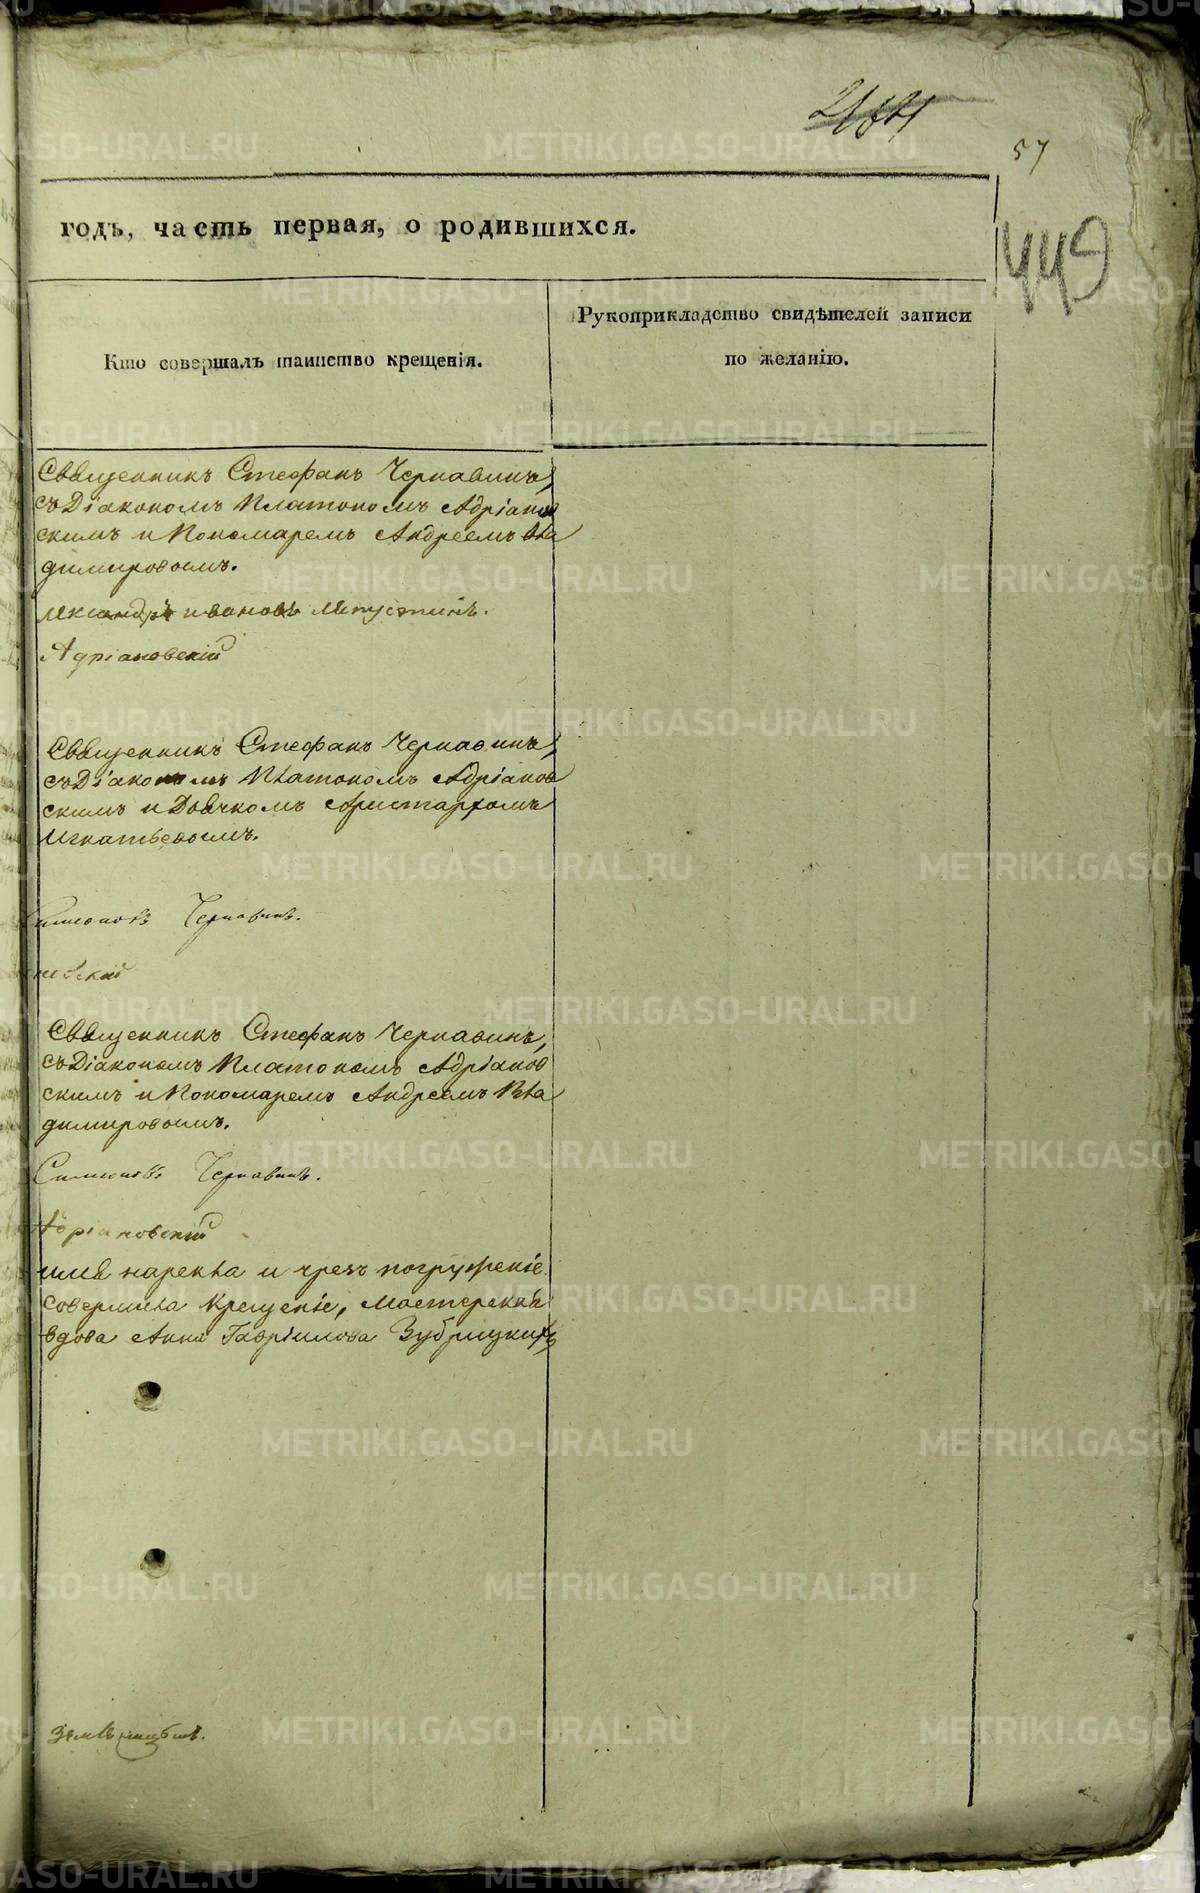 57
449
годъ, часть первая, о родившихся.
Кто совершалъ таинство крещенія.
Рукоприкладство свидѣтелей записи
по желанію.
Священникъ Стефанъ Чернавинъ,
съ Діакономъ Платономъ Адріанов
скимъ и Пономаремъ Андреемъ Вла
димировымъ.
Ивановъ
Адріановскій
Священникъ Стефанъ Чернавинъ,
съ Діакономъ Платономъ Адріанов
скимъ и Дьячкомъ Аристархомъ
Игнатьевымъ.
Чернавинъ.
Священникъ Стефанъ Чернавинъ,
съ Діакономъ Платономъ Адріанов
скимъ и Пономаремъ Андреемъ Вла
димировымъ.
Чернавинъ.
Адріановскій
имя нарекла и чрезъ погруженіе
совершила крещеніе, мастерская
вдова Анна Гавріилова Зубрицкихъ
METRIKI.GASO-URAL.RU